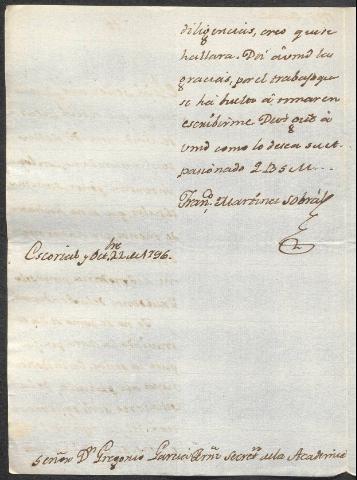 diligencias, creo que se
hallara. Doi â vmd las
gracias, por el trabajo que
se há buelto â tomar en
escribirme. Dios gue â
vmd como lo desea su apasionado
Q B S M.
Franco. Martinez Sobral
Escorial y Octbre 22 de 1796.
Señor Dn. Gregorio Garcia Secreo. de la Academia